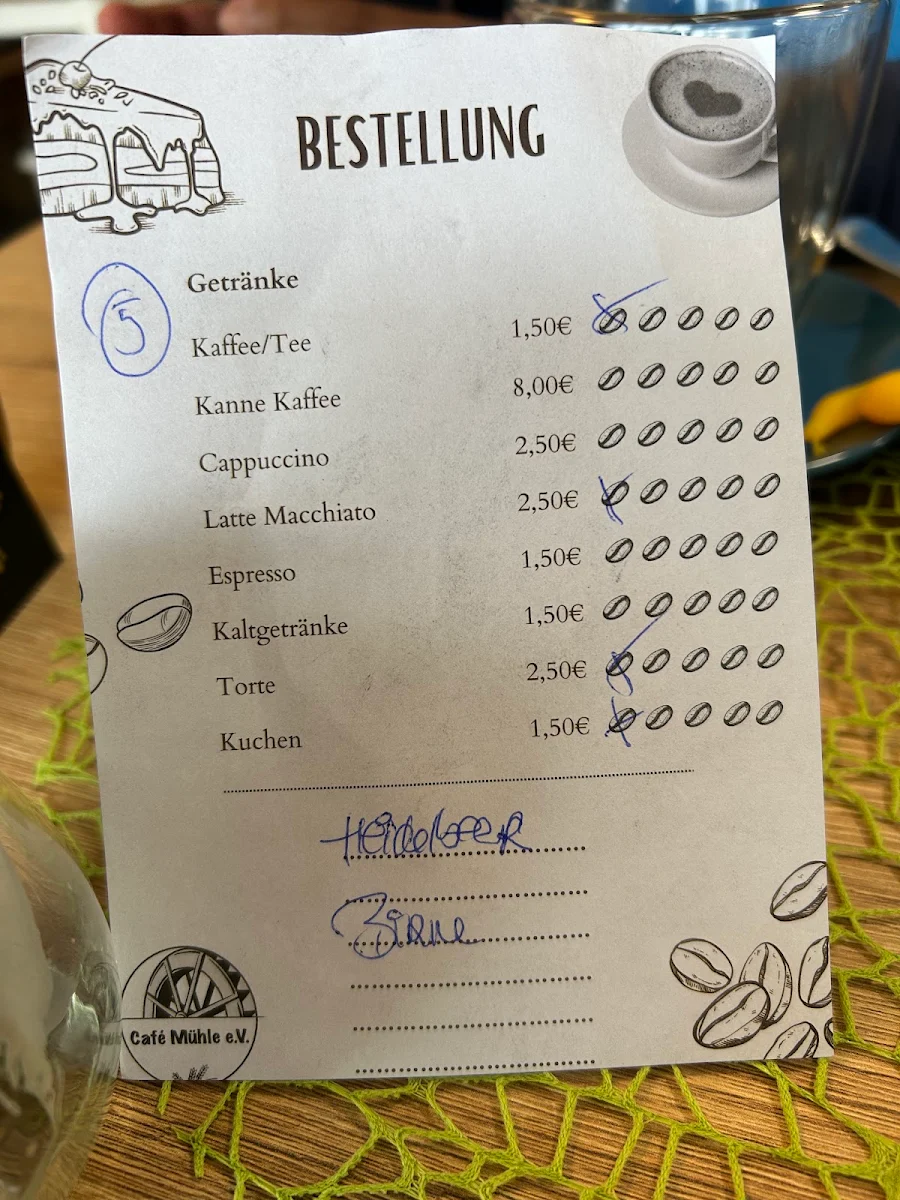 BESTELLUNG
5
Getränke
Kaffee/Tee 1,50€
Kanne Kaffee 8,00€
Cappuccino 2,50€
Latte Macchiato 2,50€
Espresso 1,50€
Kaltgetränke 1,50€
Torte 2,50€
Kuchen 1,50€
Heidelbeer
Birne
Café Mühle e.V.